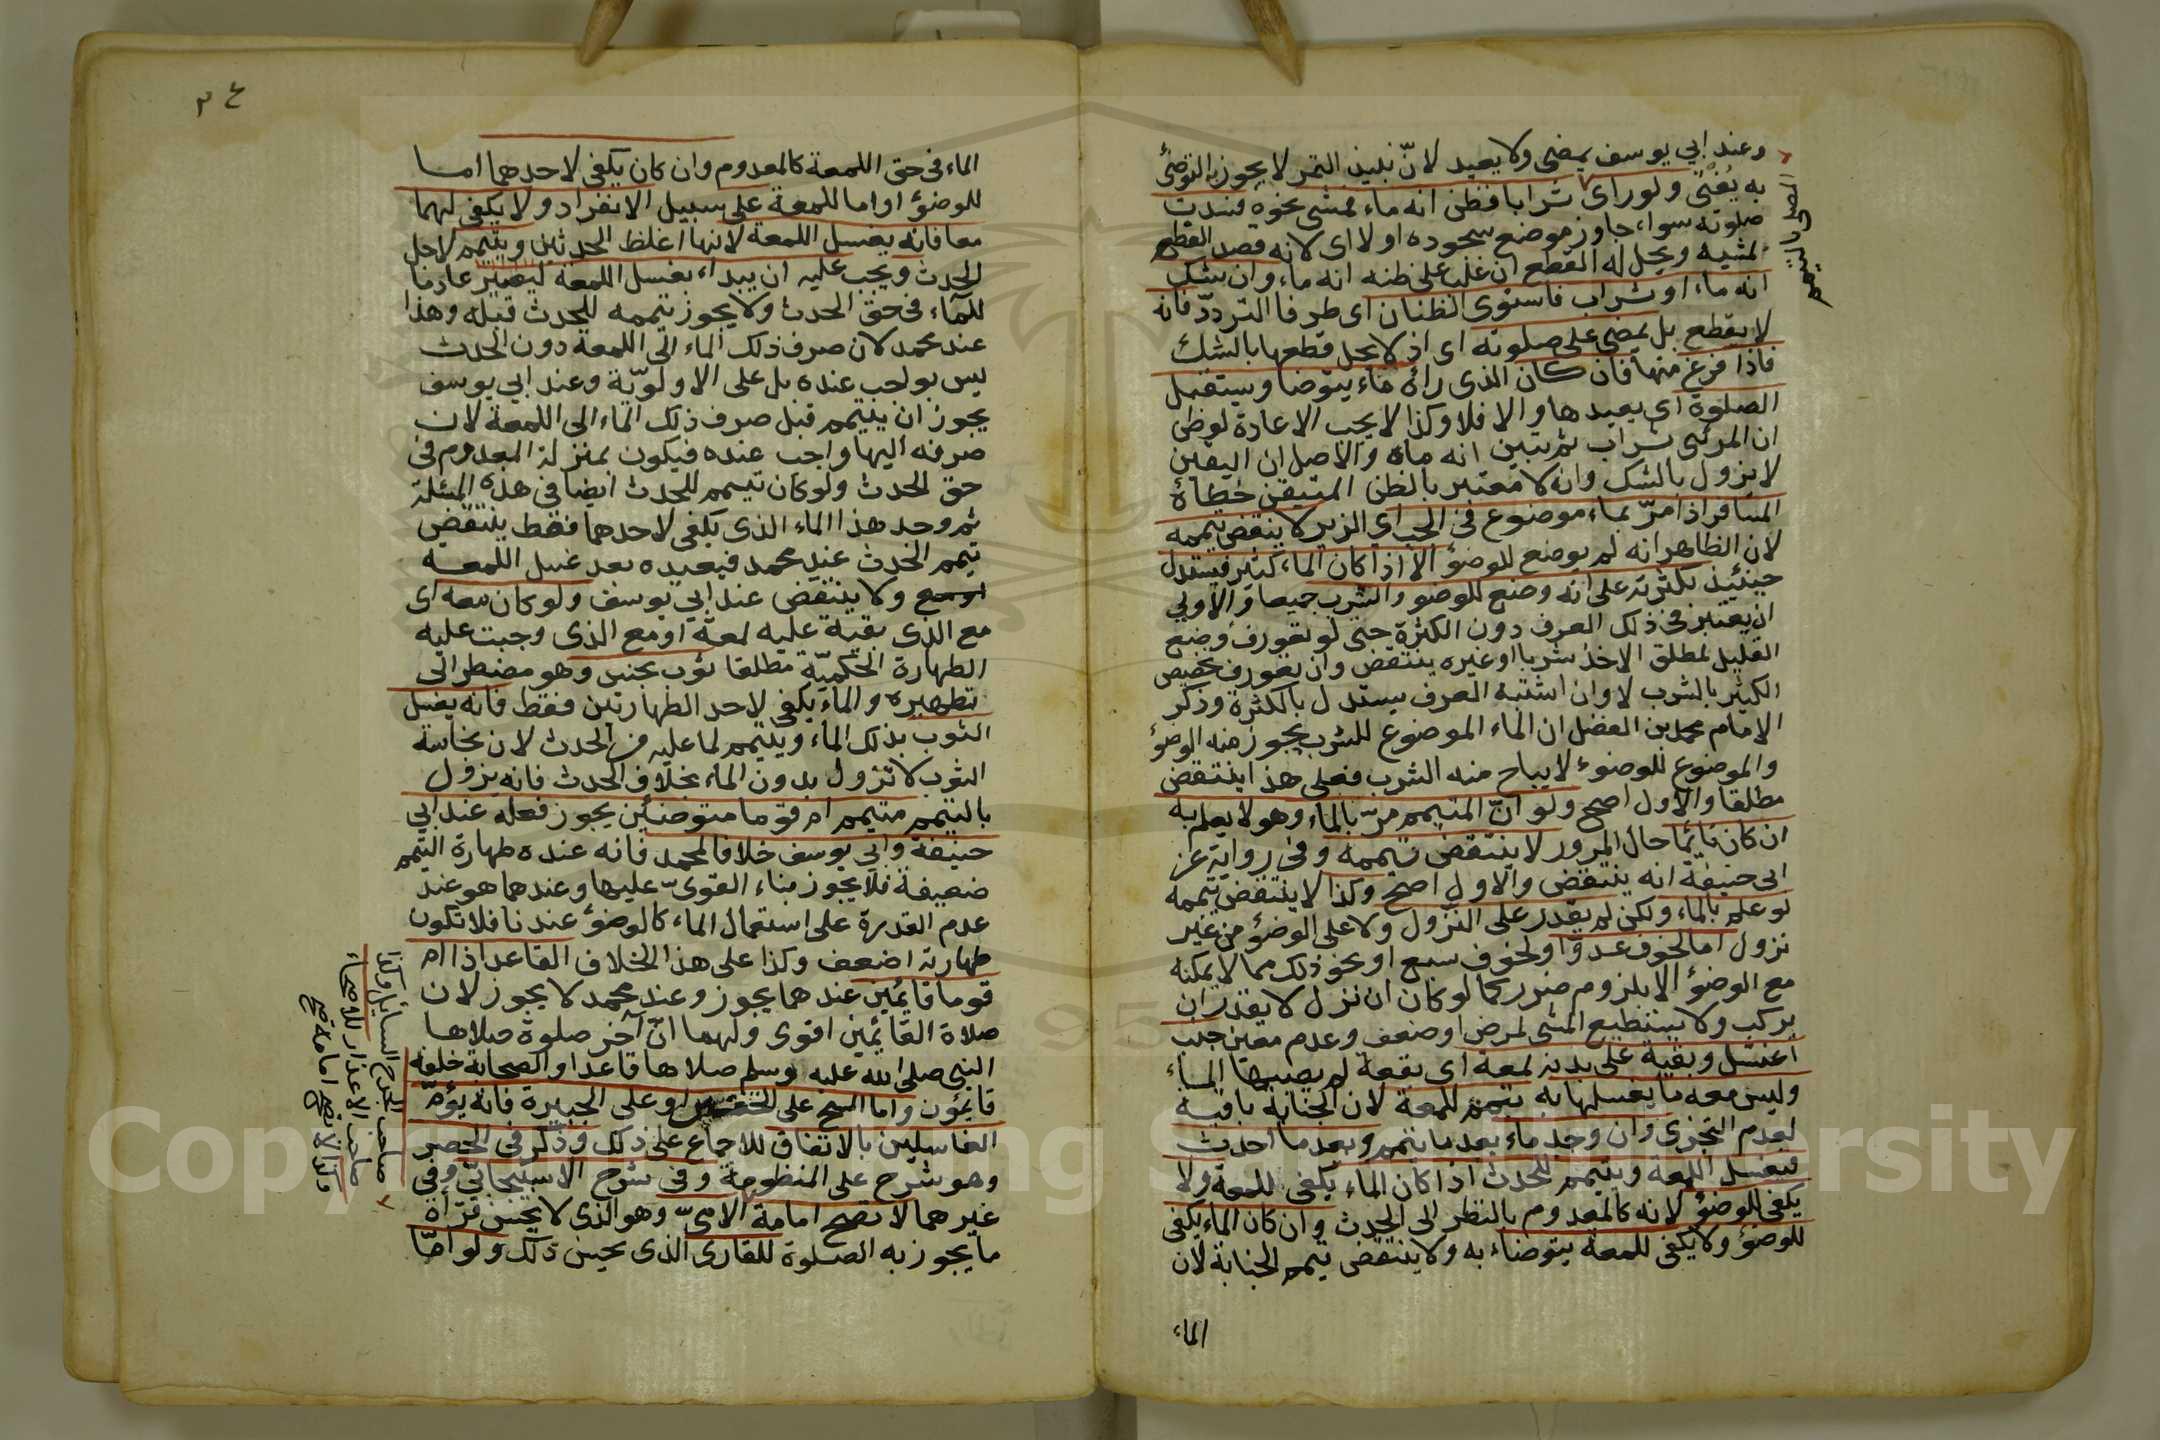 وعند ابي يوسف يمضى ولا يعيد لانّ نبيذ التمر لا يجوز التوضئ
به يُفتى ولو راى شرابا فظن انه ماء فمشى نحوه فسدت
صلوته سواء جاوز موضع سجوده اولا اى لانه قصد القطع
لمشيه ويحل له القطع ان غلب على ظنه انه ماء وان شك
انه ماء او شراب فاستوى الظنان اى طرفا التردد فانه
لا يقطع بل يمضى على صلوته اى اذ لا يحل قطعها بالشك
فاذا فرغ منها فان كان الذى رأه ماء يتوضا ويستقبل
الصلوة اى يعيدها والا فلا وكذا لا يجب الاعادة لو ظن
ان المرئى شراب ثم تبين انه ماء والاصل ان اليقين
لا يزول بالشك وانه لا معتبر بالظن المتيقن خطاؤه
المسافر اذا مرّ بماء موضوع فى الحب اى الزير لا ينقض تيممه
لان الظاهر انه لم يوضع للوضوء الا اذا كان الماء كثير فيستدل
حينئذ بكثرته على انه وضع للوضوء والشرب جميعا والاولى
ان يعتبر فى ذلك العرف دون الكثرة حتى لو تعورف وضع
القليل لمطلق الاخذ شربا او غيره ينتقض وان تعورف تخصيص
الكثير بالشرب لا وان اشتبه العرف يستدل بالكثرة وذكر
الامام محمد بن الفضل ان الماء الموضوع للشرب يجوز منه الوضؤ
والموضوع للوضوء لا يباح منه الشرب فعلى هذا ينتقض
مطلقا والاول اصح ولو انّ المتيمم مرّ بالماء وهو لا يعلم به
ان كان نائما حال المرور لا ينتقض تيممه وفى رواية عن
ابى حنيفة انه ينتقض والاول اصح وكذا لا ينتقض تيممه
لو علم بالماء ولكن لم يقدر على النزول ولا على الوضؤ من غير
نزول اما لخوف عدو او لخوف سبع او نحو ذلك مما لا يمكنه
مع الوضؤ الا بلزوم ضرر كما لو كان ان نزل لا يقدر ان
يركب ولا يستطيع المشى لمرض او ضعف وعدم معين جنب
اغتسل وبقية على بدنه لمعة اى بقعة لم يصيبها الماء
وليس معه ما يغسلها به تيمم للمعة لان الجنابة باقية
لعدم التجزى وان وجد ماء بعد ما تيمم وبعد ما احدث
فيغسل اللمعة ويتيمم للحدث اذا كان الماء يكفى للمعة ولا
يكفى للوضؤ لانه كالمعدوم بالنظر الى الحدث وان كان الماء يكفى
للوضؤ ولا يكفى للمعة يتوضاء به ولا ينتقض تيمم الجنابة لان
الماء
المصلى بالتيمم
٣٤
الماء فى حق اللمعة كالمعدوم وان كان يكفى لاحدهما اما
للوضؤ او اما للمعة على سبيل الانفراد ولا يكفى لهما
معا فانه يغسل اللمعة لانها اغلظ الحدثين ويتيمم لاجل
الحدث ويجب عليه ان يبداء بغسل اللمعة ليصير عادما
للماء فى حق الحدث ولا يجوز تيممه للحدث قبله وهذا
عند محمد لان صرف ذلك الماء الى اللمعة دون الحدث
ليس بواجب عنده بل على الاولويّة وعند ابي يوسف
يجوز ان يتيمم قبل صرف ذلك الماء الى اللمعة لان
صرفه اليها واجب عنده فيكون بمنزلة المعدوم فى
حق الحدث ولو كان تيمم للحدث ايضا فى هذه المسئلة
ثم وجد هذا الماء الذى يكفى لاحدهما فقط ينتقض
تيمم الحدث عند محمد فيعيده بعد غسل اللمعه
ولا ينتقض عند ابي يوسف ولو كان معه اى
مع الذى بقية عليه لمعة او مع الذى وجبت عليه
الطهارة الحكميّة مطلقا ثوب نجس وهو مضطر الى
تطهيره والماء يكفى لاحد الطهارتين فقط فانه يغسل
الثوب بذلك الماء ويتيمم لما عليه من الحدث لان نجاسة
الثوب لا تزول بدون الماء بخلاف الحدث فانه يزول
بالتيمم متيمم ام قوما متوضئين يجوز فعله عند ابي
حنيفة وابي يوسف خلافا لمحمد فانه عنده طهارة التيمم
ضعيفة فلا يجوز بناء القوىّ عليها وعندهما هو عند
عدم القدرة على استعمال الماء كالوضؤ عندنا فلا تكون
طهارته اضعف وكذا على هذا الخلاف القاعد اذا ام
قوما قائمين عندهما يجوز وعند محمد لا يجوز لان
صلاة القائمين اقوى ولهما انّ آخر صلوة صلاها
النبى صلى الله عليه وسلم صلاها قاعدا والصحابة خلفه
قائمون واما المسح على الخفين او على الجبيرة فانه يؤمّ
الغاسلين بالاتفاق للاجماع على ذلك وذكر فى الحصر
وهو شرح على المنظومة وفى شرح الاسبيجابى وفى
غيرهما لا تصح امامة الامىّ وهو الذى لا يحسن قرأة
ما يجوز به الصلوة للقارى الذى يحسن ذلك ولو امّيا
صاحب الجرح السايل وكذا
صاحب الاعذار للاصحاء
وكذا لا تصح امامة